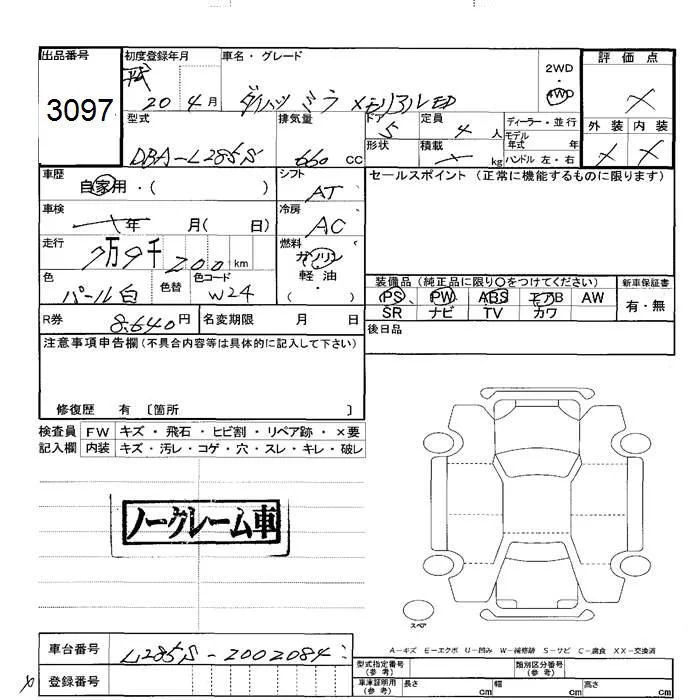 出品番号 初度登録年月 車名・グレード 評価点
3097 平 20 4月 ダイハツ ミラ メモリアルED 2WD ・ 4WD ×
型式 排気量 ドア 定員 ディーラー・並行 外装 内装
DBA-L285S 660 CC 5 4人 モデル年式 年 × ×
形状 積載 kg ハンドル 左・右
車歴 自家用・( ) シフト AT セールスポイント (正常に機能するものに限ります)
車検 年 月( 日) 冷房 AC
走行 7万9千200km 燃料 ガソリン・軽油・( )
色 パール白 色替 色コード W24
装備品 (純正品に限り○をつけてください) 新車保証書
PS PW ABS エアB AW 有・無
SR ナビ TV カワ
R券 8,640円 名変期限 月 日 後日品
注意事項申告欄(不具合内容等は具体的に記入して下さい)
修復歴 有 〔箇所 〕
検査員 FW キズ・飛石・ヒビ割・リペア跡・×要
記入欄 内装 キズ・汚レ・コゲ・穴・スレ・キレ・破レ
ノークレーム車
スペア
A-キズ E-エクボ U-凹み W-補修跡 S-サビ C-腐食 XX-交換済
車台番号 L285S-2002084
型式指定番号(参考) 類別区分番号(参考)
登録番号 車庫証明用(参考) 長さ cm 幅 cm 高さ cm